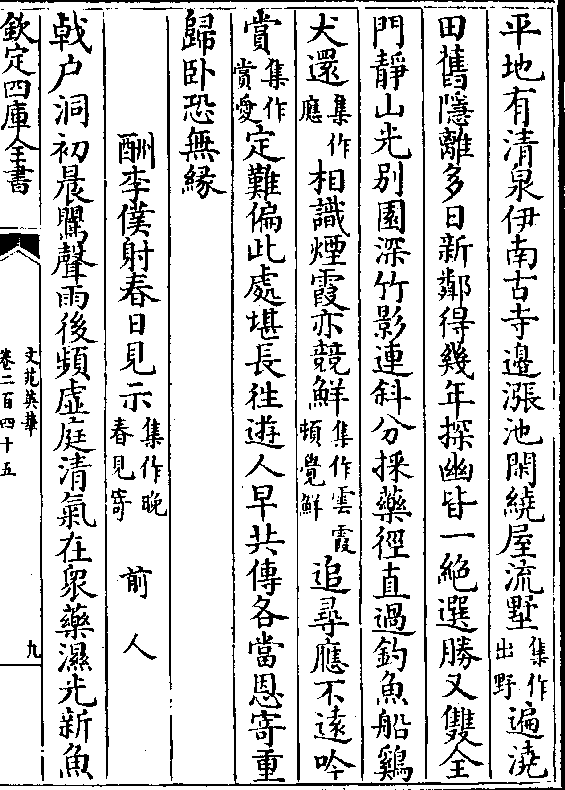 平地有清泉伊南古寺邊漲池閑繞屋流墅集作出野遍澆
田舊隱離多日新鄰得幾年探幽皆一絶選勝又雙全
門靜山光别園深竹影連斜分採藥徑直過釣魚船鷄
犬還集作應相識煙霞亦競鮮集作雲霞頓覺鮮追尋應不遠吟
賞集作賞愛定難偏此處堪長徃遊人早共傳各當恩寄重
歸卧恐無緣
酬李僕射春日見示集作晚春見寄 前人
戟户洞初晨鸎聲雨後頻虚庭清氣在衆藥濕光新魚
欽定四庫全書
文苑英華
卷二百四十五
九